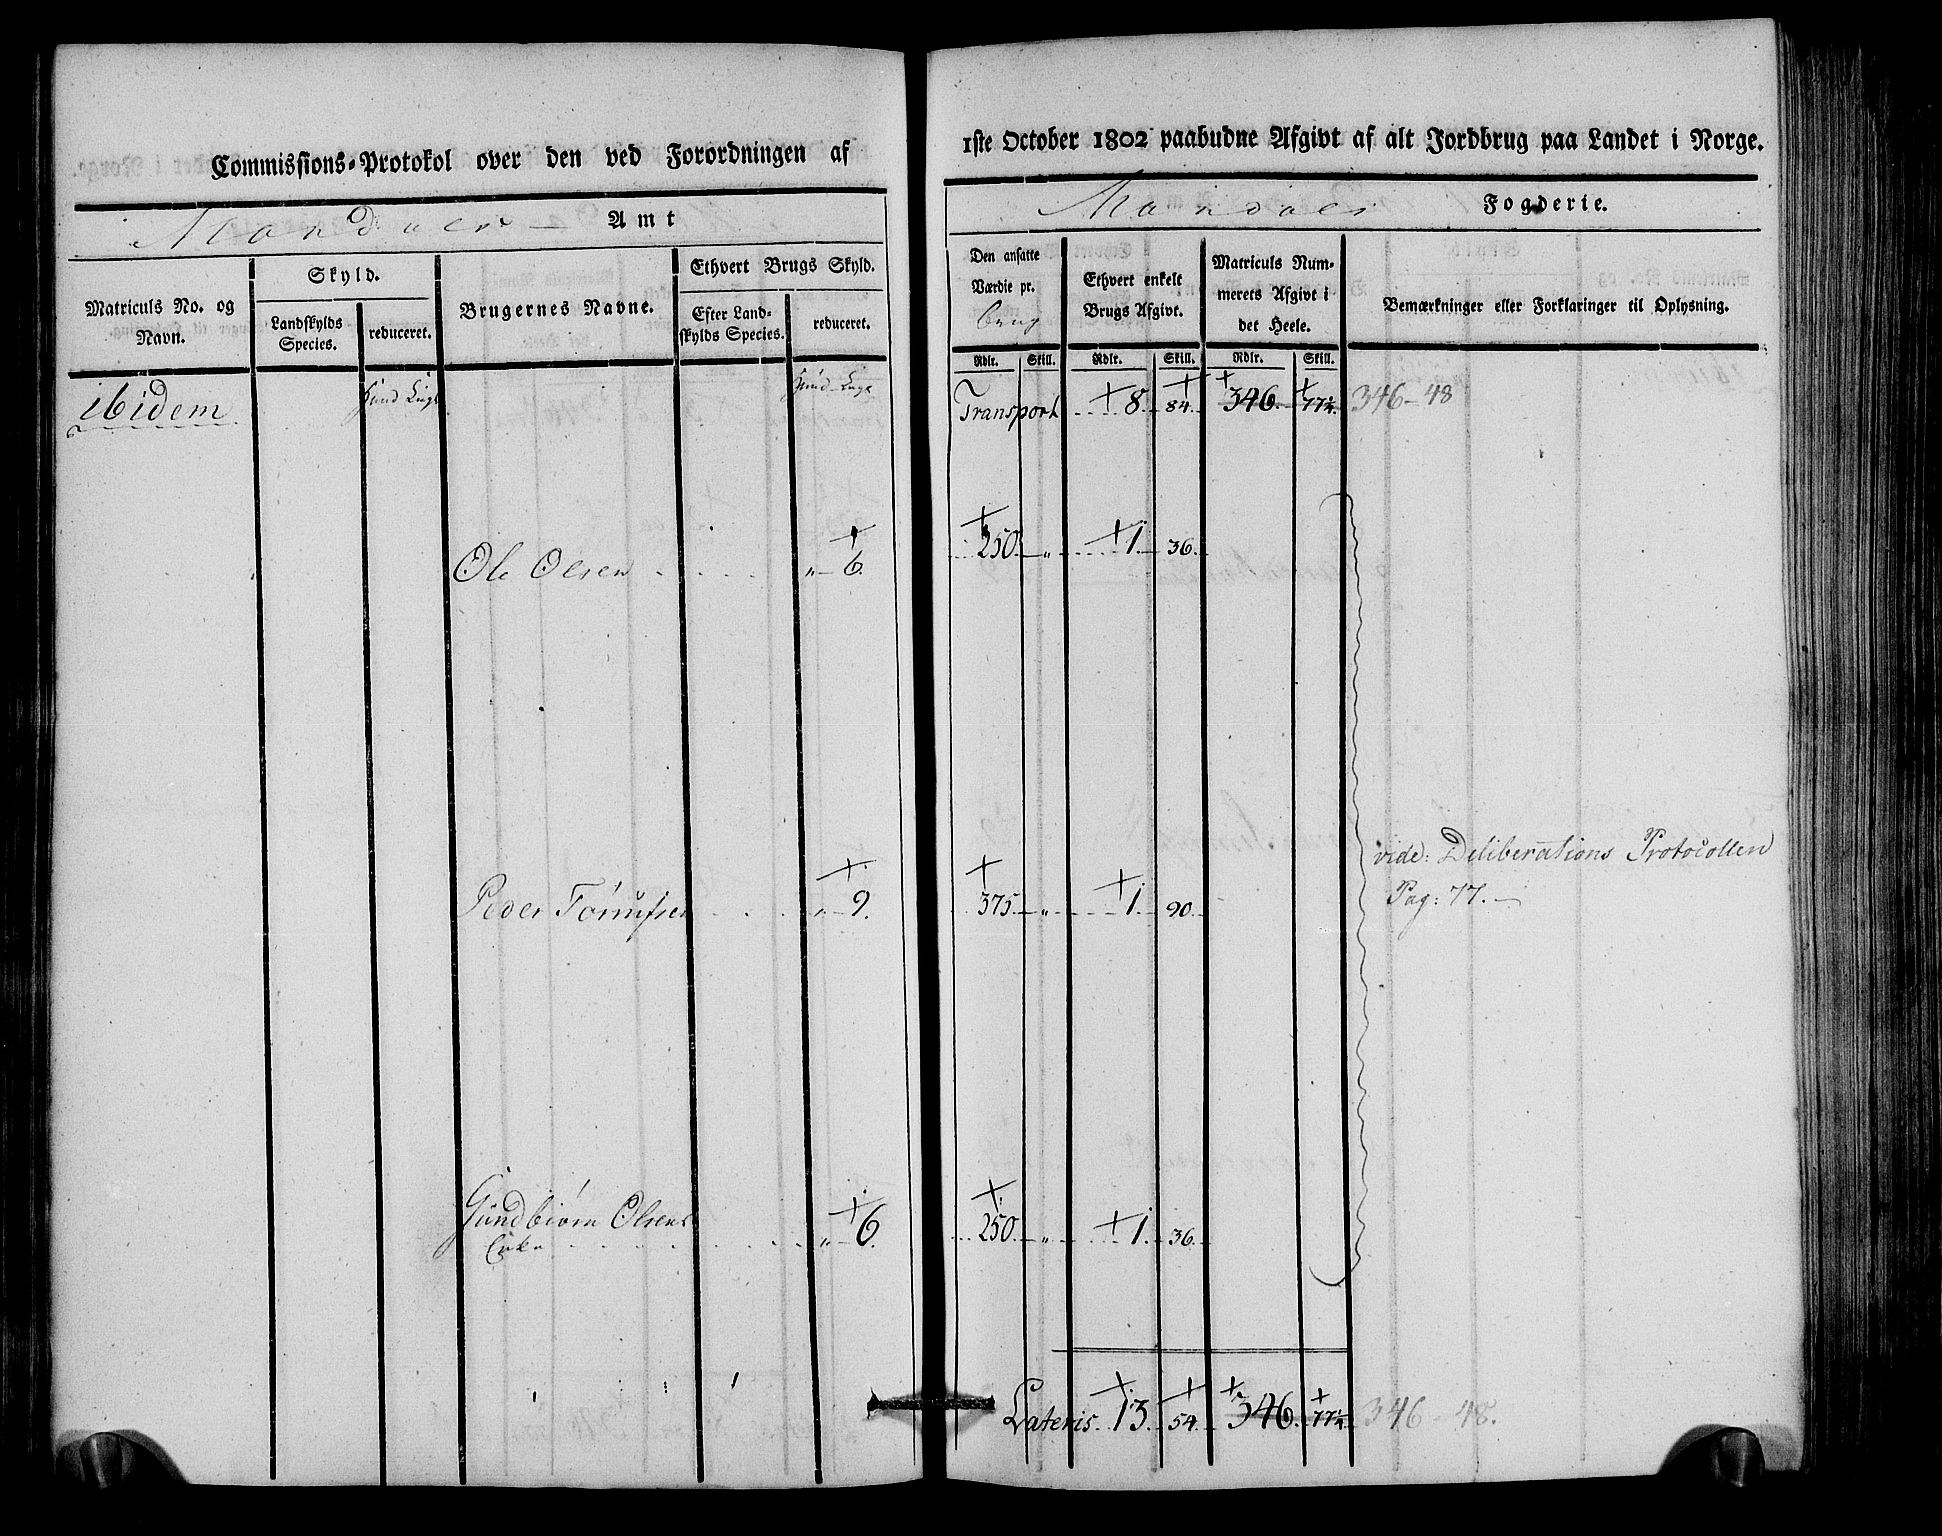 Commissions-Protokol over den ved Forordningen af
1ste October 1802 paabudne Afgivt af alt Jordbrug paa Landet i Norge.
Mandals Amt
Mandals Fogderie.
Matriculs No. og Navn.
Skyld.
Landskylds Species.
reduceret.
Brugernes Navne.
Ethvert Brugs Skyld.
Efter Landskylds Species.
reduceret.
Den ansatte Værdie pr. brug
Ethvert enkelt Brugs Afgivt.
Matriculs Nummerets Afgivt i det Heele.
Bemærkninger eller Forklaringer til Oplysning.
Rdlr. Skill. Rdlr. Skill. Rdlr. Skill.
ibidem
Transport 8. 84. 346. 77¼. 346-48
Ole Olsen " 6. 250 " 1. 36.
Peder " 9. 375 " 1. 90.
vide: Deliberations Protocollen
Pag: 77.
Gundbiørn Olsens
Enke " 6. 250 " 1. 36.
Lateris 13. 54. 346. 77¼ 346-48.